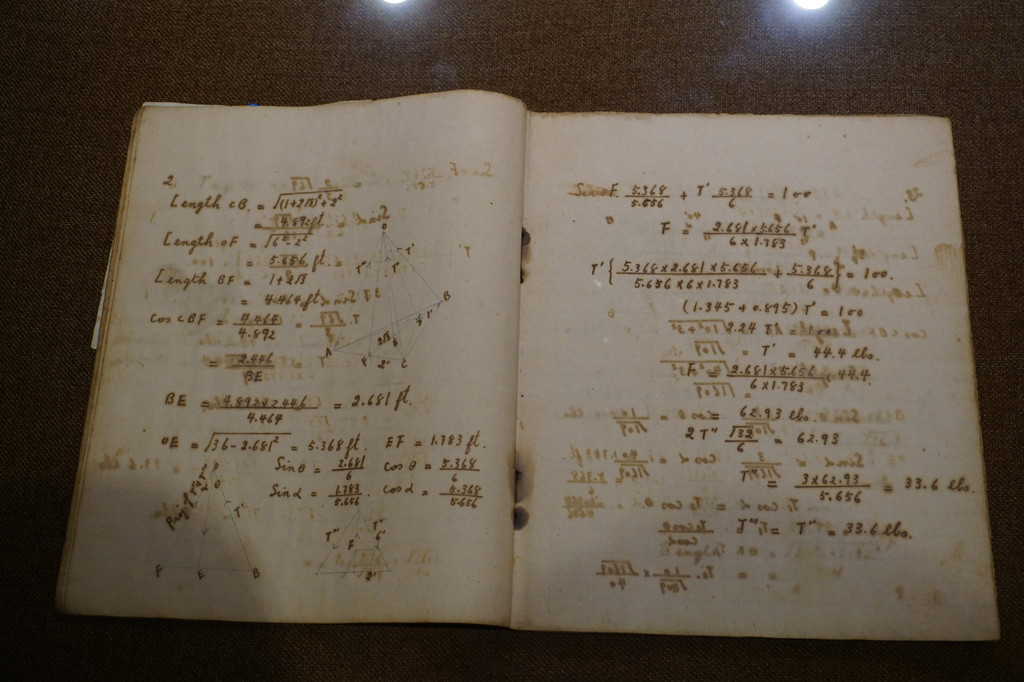 2.
Length CB. = √(1+2√3)²+2²
= 4.892 ft.
Length OF = √6²-2²
= 5.656 ft.
Length BF = 1+2√3
= 4.464 ft
cos CBF = 4.464/4.892
= 2.446/BE
BE = 4.892×2.446/4.464 = 2.681 ft.
OE = √36-2.681² = 5.368 ft. EF = 1.783 ft.
Sin θ = 2.681/6 cos θ = 5.368/6
Sin α = 1.783/5.656 . cos α = 5.368/5.656
O
T'
F E B
O
T'
B
A
F
2'
C
T'''
T''
F
6'
2'
F. 5.368/5.656 + T' 5.368/6 = 100
F = 2.681×5.656/6×1.783 T'
T' {5.368×2.681×5.656/5.656×6×1.783 + 5.368/6} = 100.
(1.345 + 0.895) T' = 100
2.24 T' = 100
T' = 44.4 lbs.
F = 2.681×5.656/6×1.783 × 44.4
= 62.93 lbs.
2T'' √32/6 = 62.93
T'' = 3×62.93/5.656 = 33.6 lbs.
T''' = T'' = 33.6 lbs.